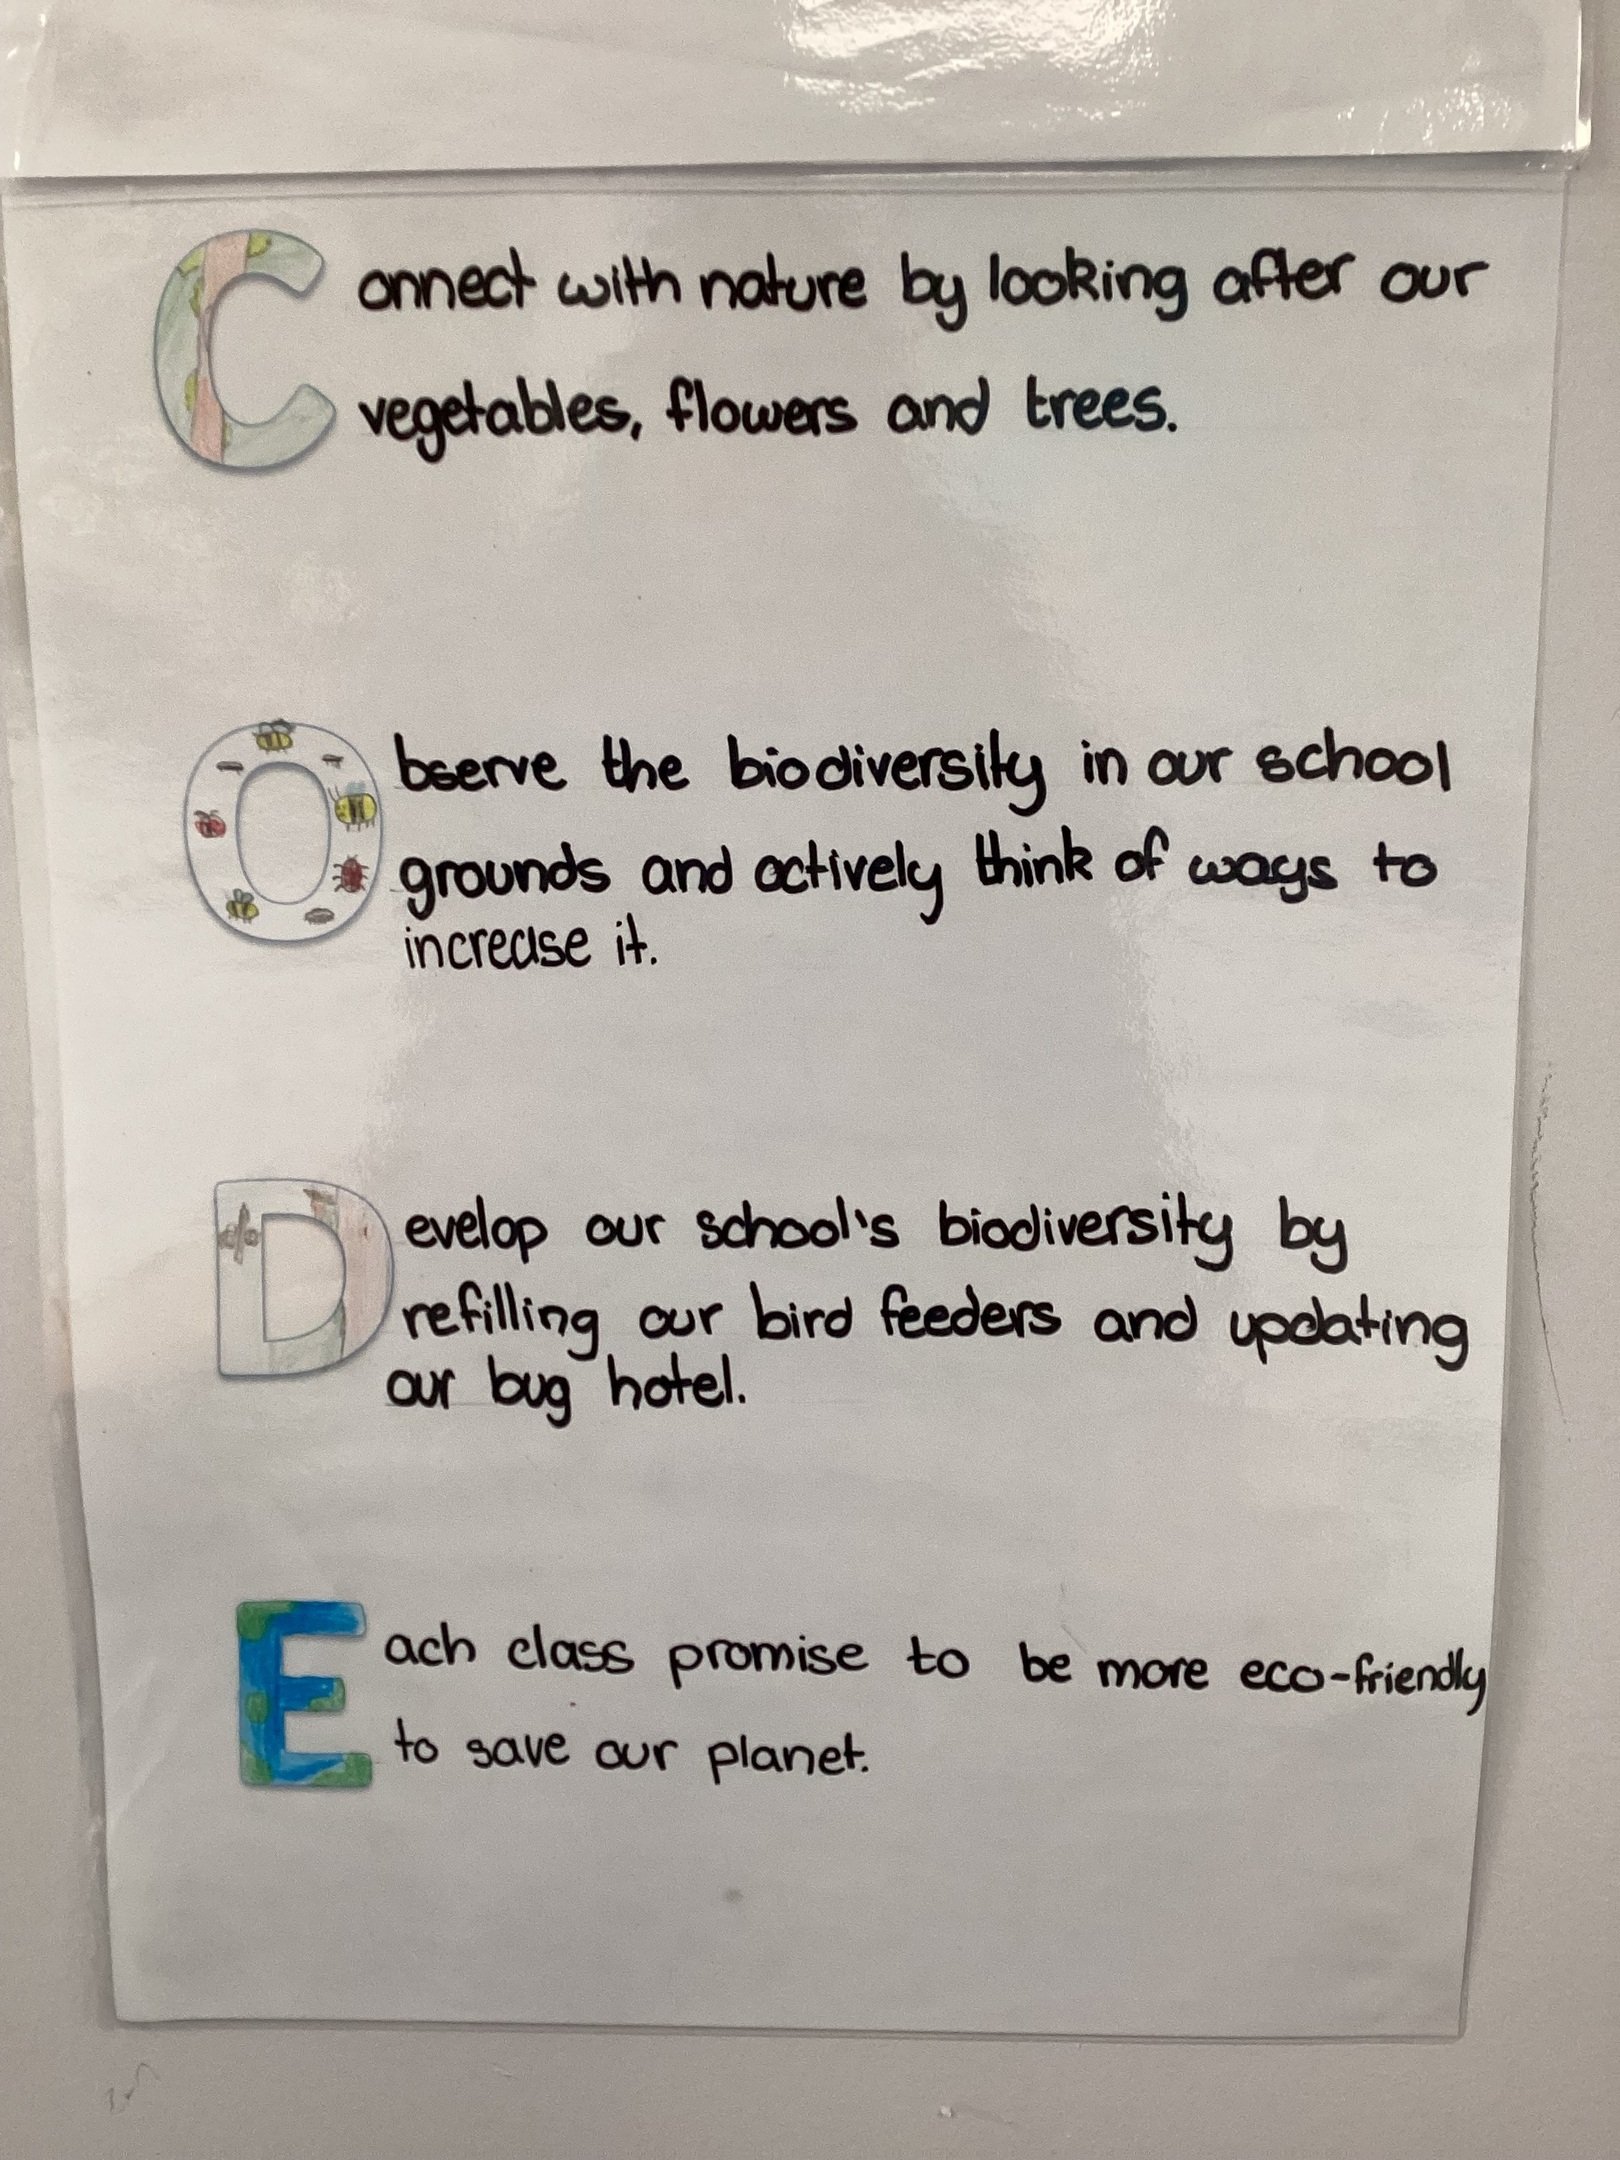 Connect with nature by looking after our
vegetables, flowers and trees.
Observe the biodiversity in our school
grounds and actively think of ways to
increase it.
Develop our school's biodiversity by
refilling our bird feeders and updating
our bug hotel.
Each class promise to be more eco-friendly
to save our planet.